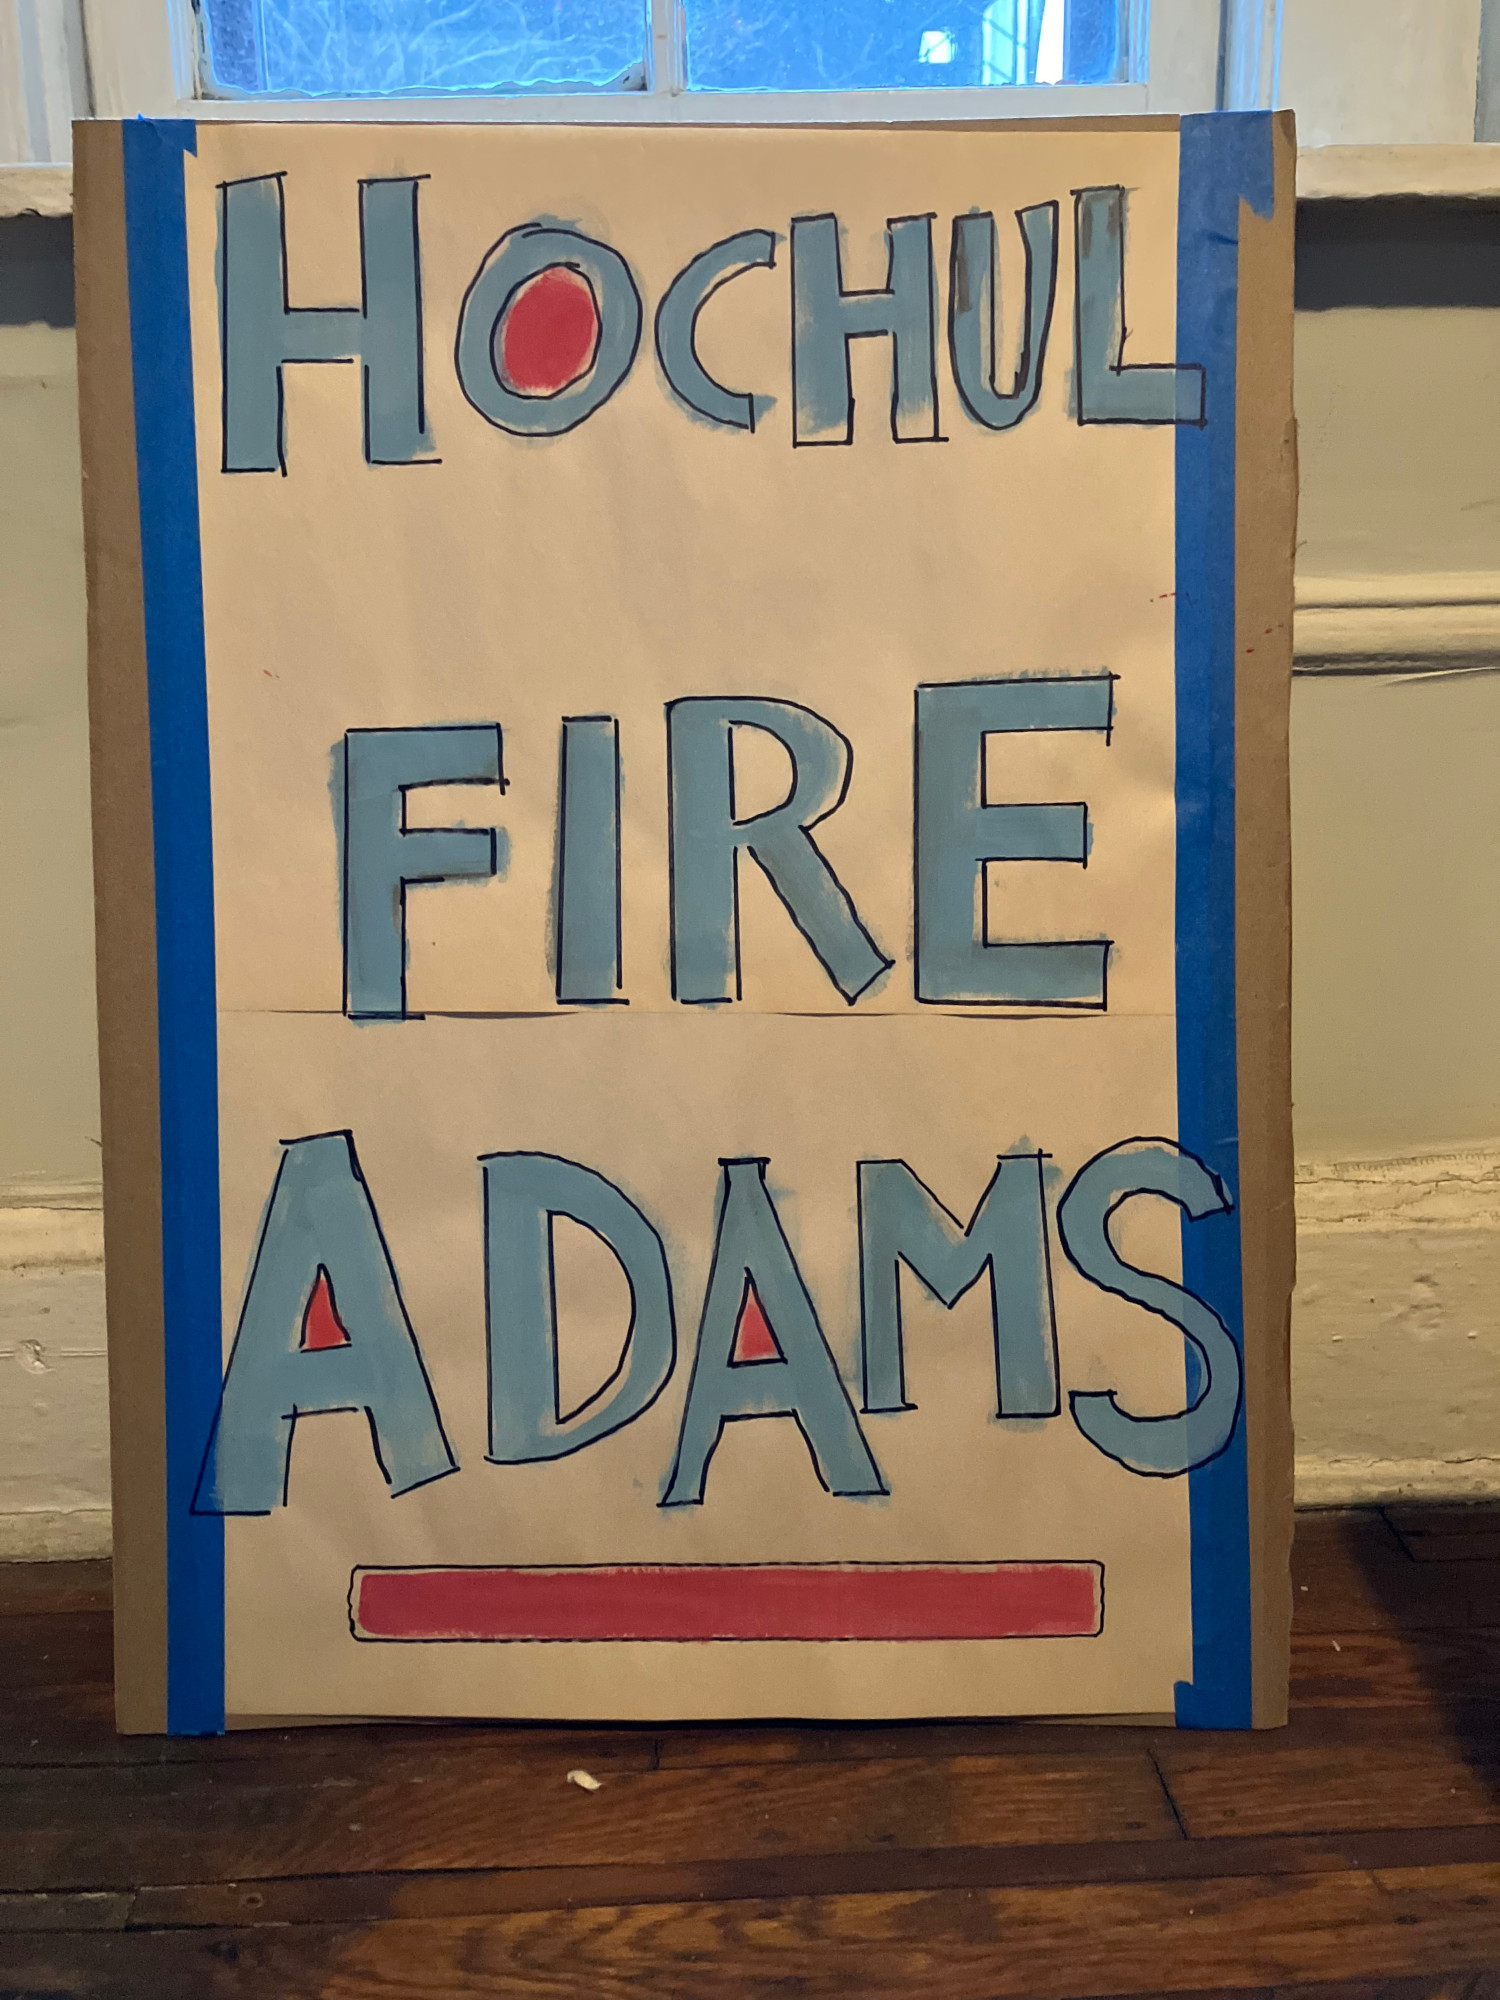 HOCHUL
FIRE
ADAMS